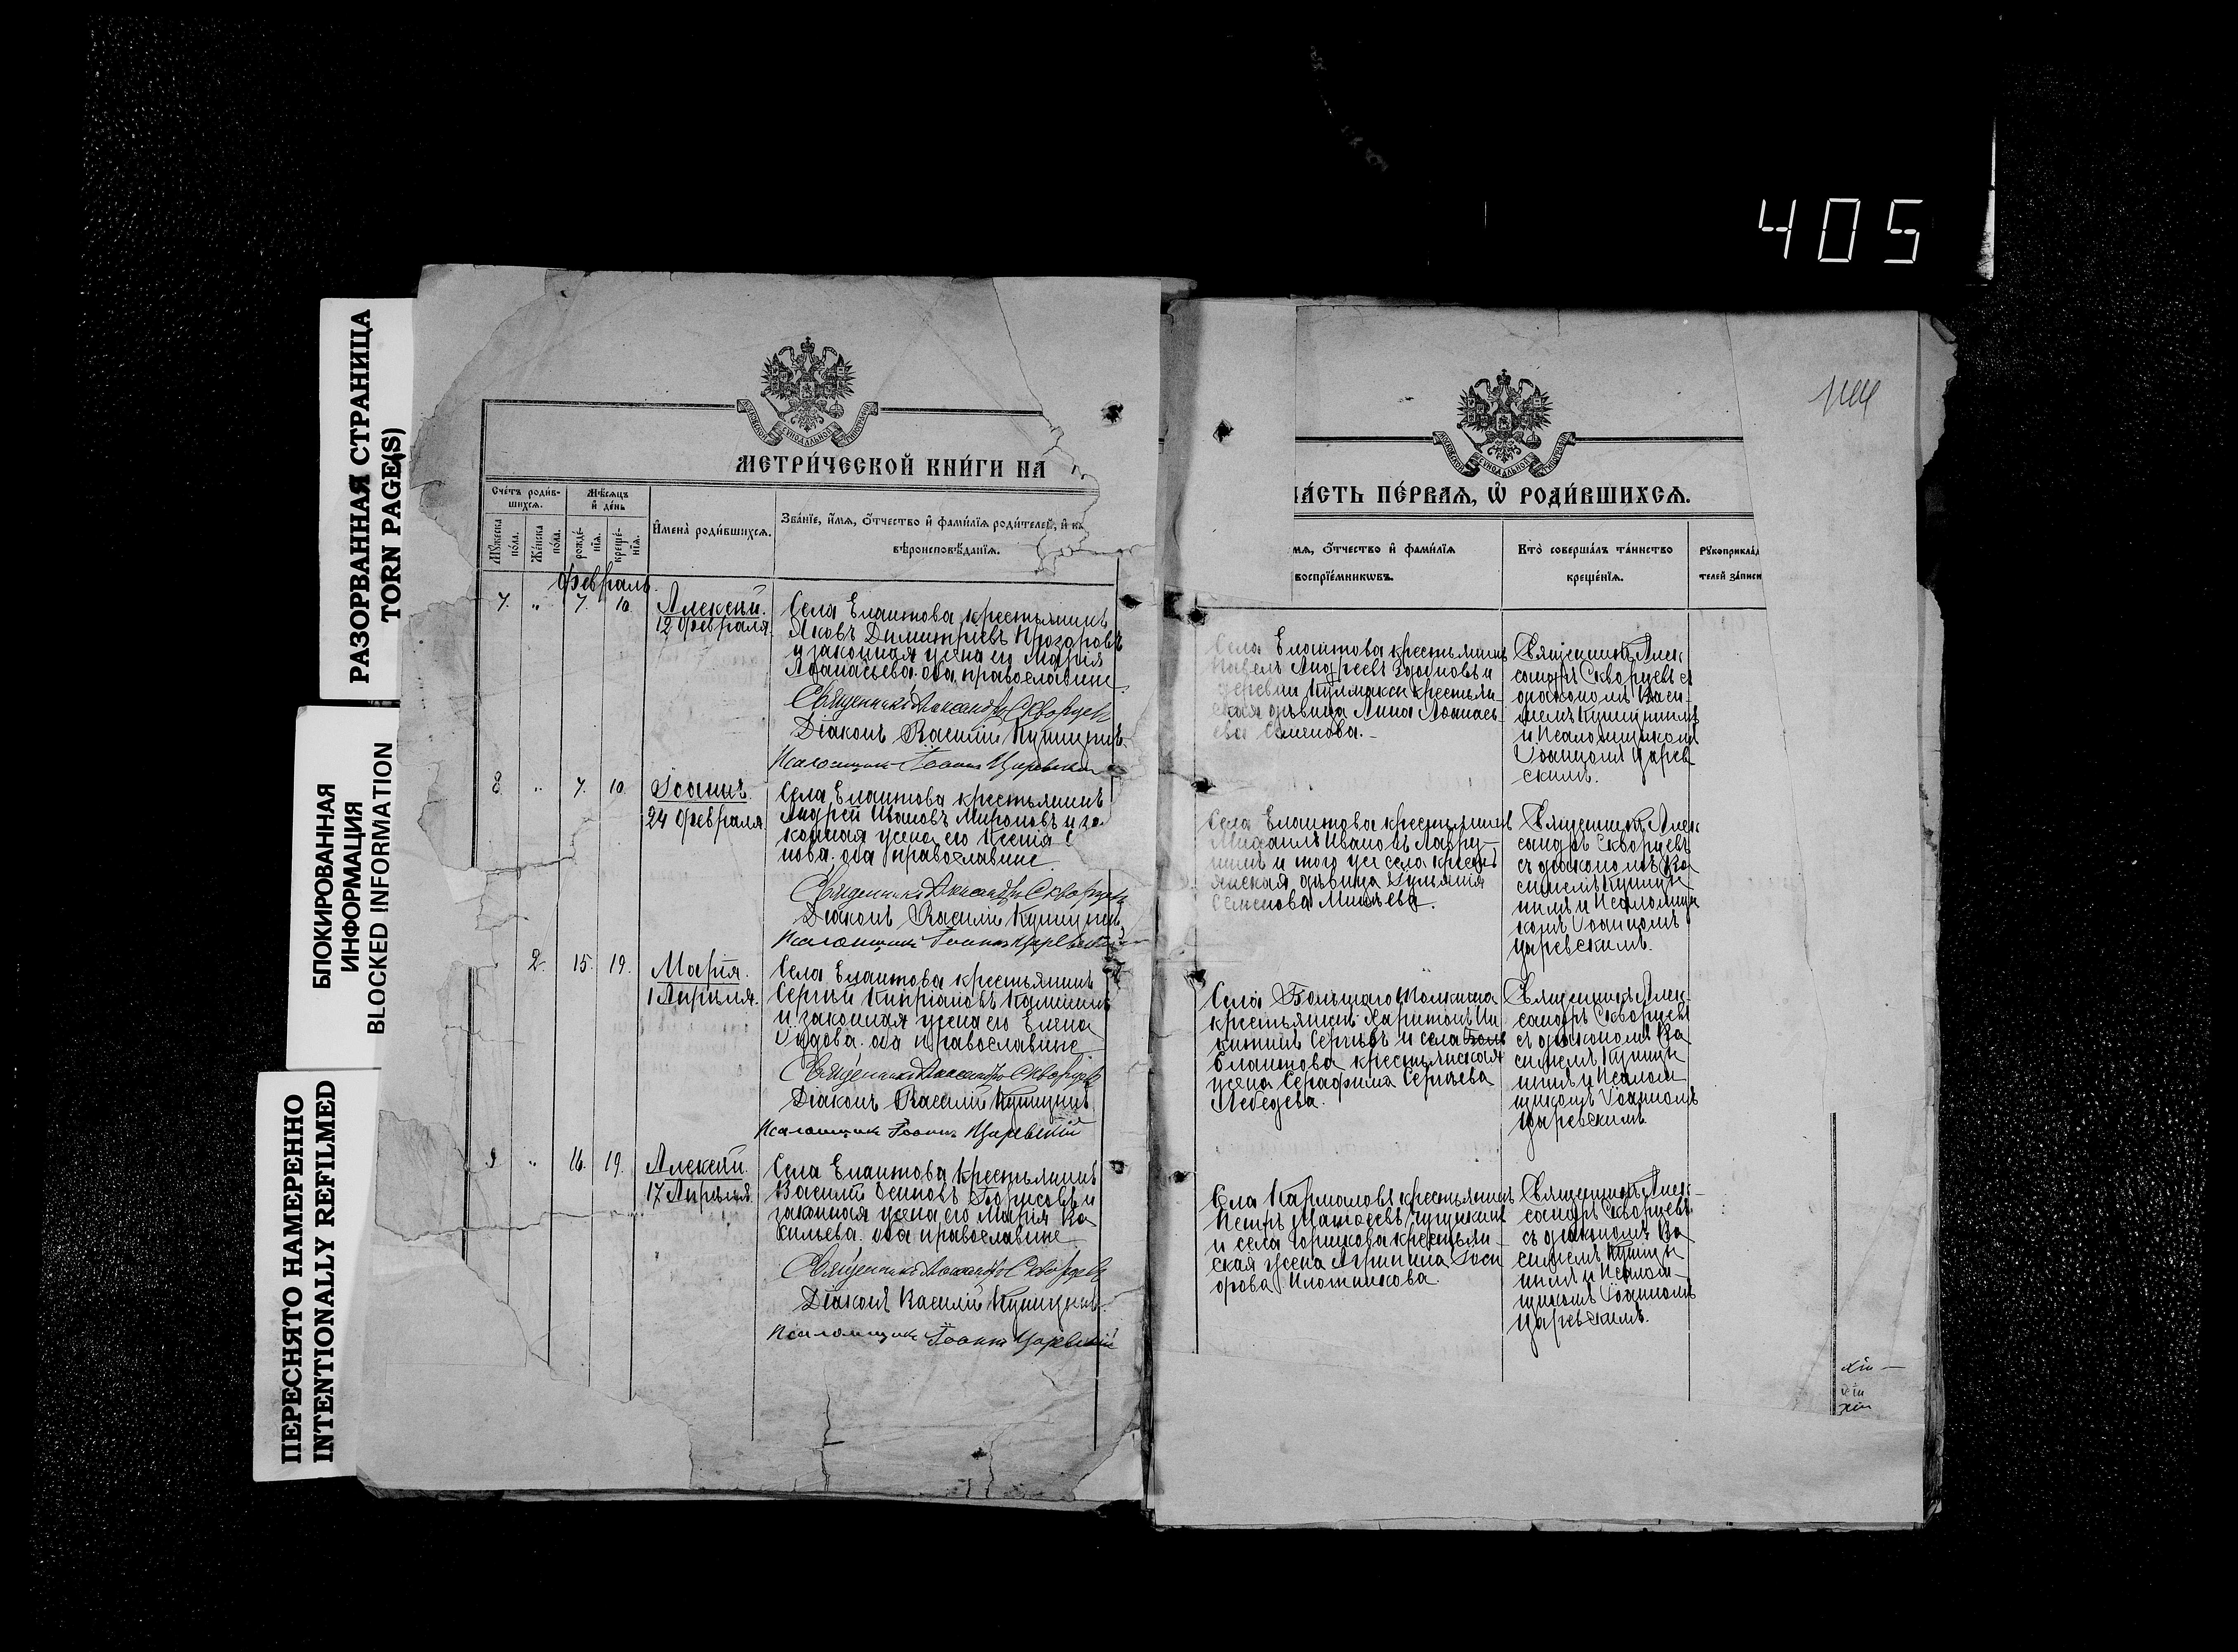 405
РАЗОРВАННАЯ СТРАНИЦА
TORN PAGE(S)
БЛОКИРОВАННАЯ
ИНФОРМАЦИЯ
BLOCKED INFORMATION
ПЕРЕСНЯТО НАМЕРЕННО
INTENTIONALLY REFILMED
МЕТРИ́ЧЕСКОЙ КНИ́ГИ НА
Счётъ роди́в-
шихся.
Мѣ́сяцъ
и де́нь
Му́жеска
по́ла.
Же́нска
по́ла.
рожде́-
нїя.
креще́-
нїя.
Имена̀ роди́вшихся.
Зва́нїе, и́мя, о́тчество и фами́лїя роди́телей, и
вѣроисповѣ́данїя.
Февраль.
7. " 7. 10.
Алексѣй.
12 февраля.
Села Елаитова крестьянинъ
Яковъ Димитріевъ Прозоровъ
и законная жена его Марія
Аѳанасьева. оба православные
Священникъ Александръ Скворцевъ
Діаконъ Василій Купицинъ.
Псаломщикъ Іоаннъ Царевскій
8. " 7. 10.
Іоаннъ.
24 февраля.
Села Елаитова крестьянинъ
Андрей Ивановъ Мироновъ и за-
конная жена его Ксенія
нова. оба православные
Священникъ Александръ Скворцевъ
Діаконъ Василій Купицинъ
Псаломщикъ Іоаннъ Царевскій
2. 15. 19.
Марія.
1 Апрѣля.
Села Елаитова крестьянинъ
Сергѣй Кипріановъ
и законная жена его Елена
оба православные
Священникъ Александръ Скворцевъ
Діаконъ Василій Купицинъ
Псаломщикъ Іоаннъ Царевскій
9 " 16. 19.
Алексѣй.
17 Апрѣля.
Села Елаитова крестьянинъ
Василій Осиповъ Борисовъ и
законная жена его Марія Ва
сильева. оба православные
Священникъ Александръ Скворцевъ
Діаконъ Василій Купицинъ
Псаломщикъ Іоаннъ Царевскій
ЧА́СТЬ ПЕ́РВАЯ, Ѡ РОДИ́ВШИХСЯ.
мя, о́тчество и фами́лїя
воспрїе́мниковъ.
Кто̀ соверша́лъ та́инство
креще́нїя.
Рукоприкла́д
телей за́писи
Села Елаитова крестьянинъ
Павелъ Андреевъ и
деревни крестьян
ская дѣвица Анна Аѳанась
ева Семенова.
Священникъ Алек
сандръ Скворцевъ съ
діакономъ Васи-
ліемъ Купицинымъ
и Псаломщикомъ
Іоанномъ Царев-
скимъ.
Села Елаитова крестьянинъ
Михаилъ Ивановъ Лавру-
нинъ и того же села кресть
янская дѣвица Іульянія
Семенова Минаева.
Священникъ Алек
сандръ Скворцевъ
съ діакономъ Ва
силіемъ Купици
нымъ и Псаломщи
комъ Іоанномъ
Царевскимъ.
Села Большаго
крестьянинъ Харитонъ Ни
китинъ Сергѣевъ и села
Елаитова крестьянская
жена Серафима Сергѣева
Лебедева.
Священникъ Алек-
сандръ Скворцевъ
съ діакономъ Ва
силіемъ Купици
нымъ и Псалом
щикомъ Іоанномъ
Царевскимъ
Села крестьянинъ
Петръ Матѳеевъ
и села крестьян
ская жена Агрипина
Плотникова.
Священникъ Алек-
сандръ Скворцевъ
съ діакономъ Ва
силіемъ Купици
нымъ и Псалом-
щикомъ Іоанномъ
Царевскимъ.